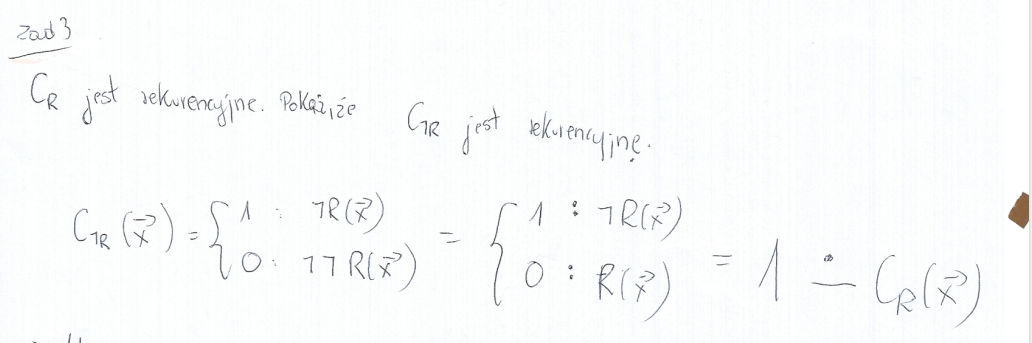 Zad 3
C_R jest rekurencyjne. Pokaż, że C_{¬R} jest rekurencyjne.
C_{¬R}(x⃗) = { 1 : ¬R(x⃗) ; 0 : ¬¬R(x⃗) = { 1 : ¬R(x⃗) ; 0 : R(x⃗) = 1 ∸ C_R(x⃗)